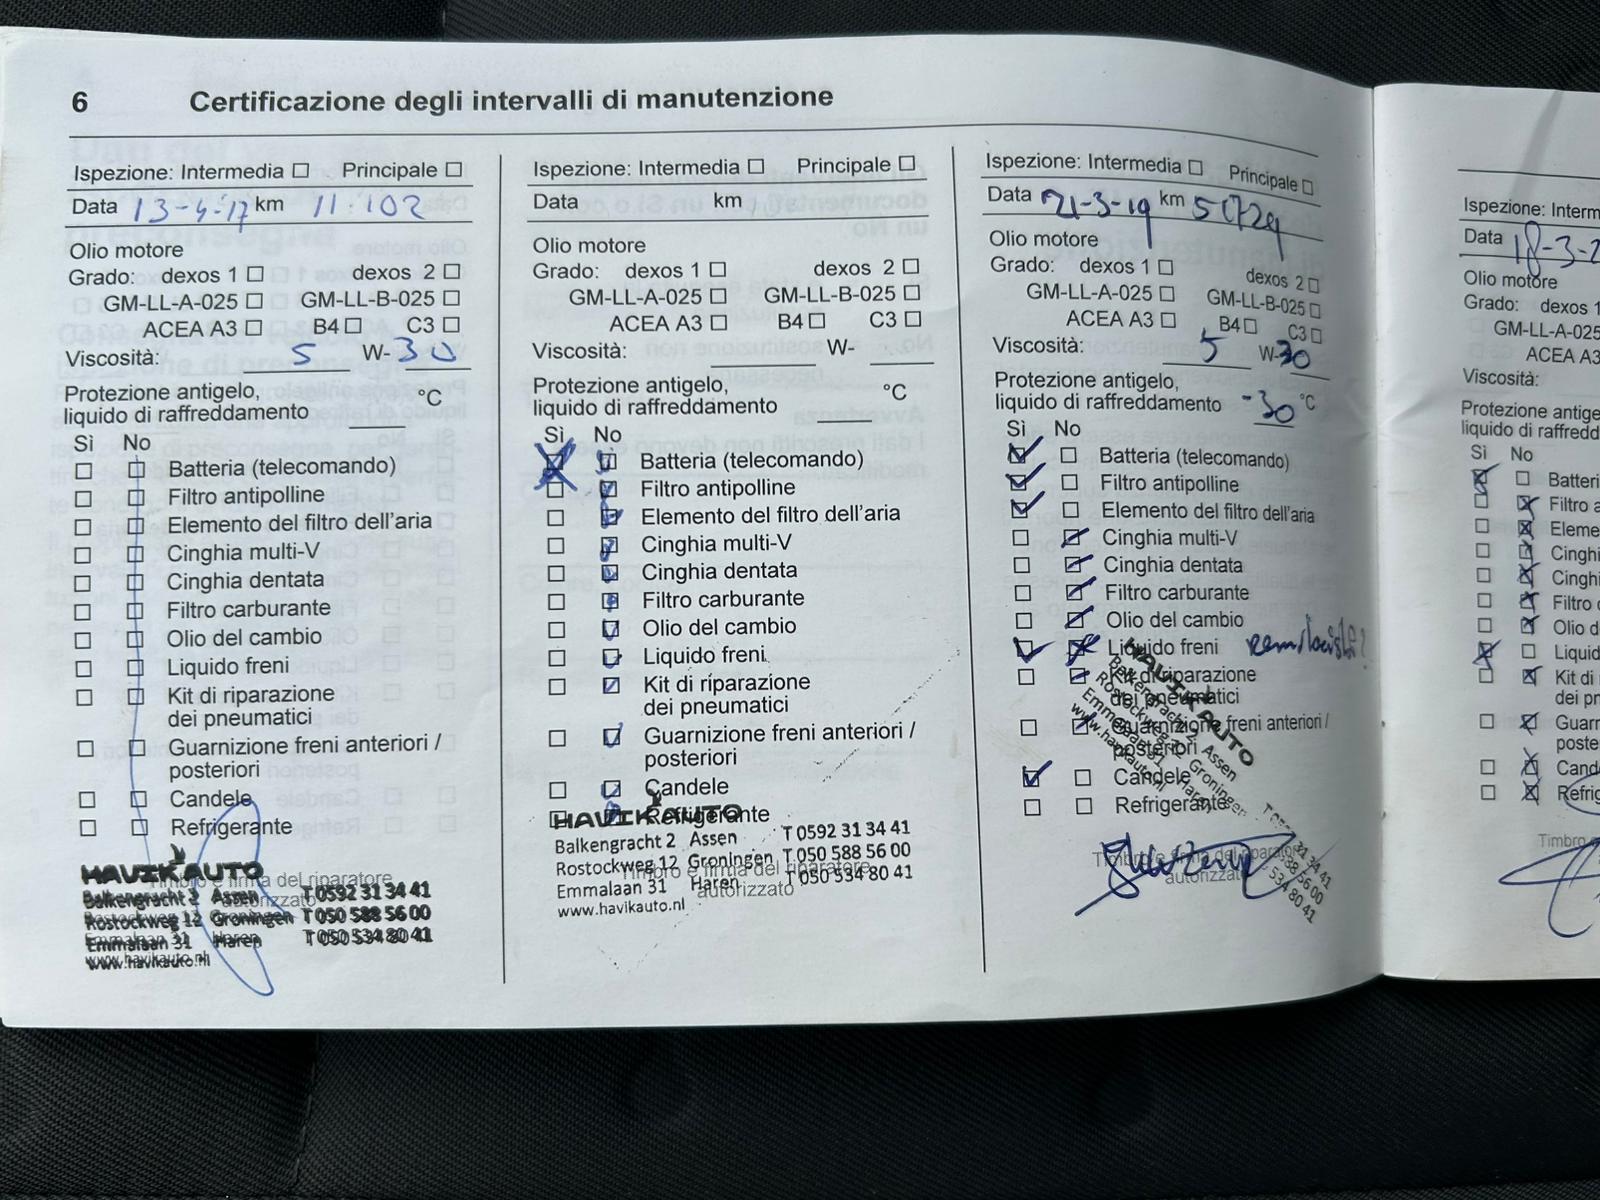 6 Certificazione degli intervalli di manutenzione
Ispezione: Intermedia ☐ Principale ☐
Data 13-4-17 km 11.102
Olio motore
Grado: dexos 1 ☐ dexos 2 ☐
GM-LL-A-025 ☐ GM-LL-B-025 ☐
ACEA A3 ☐ B4 ☐ C3 ☐
Viscosità: 5 W-30
Protezione antigelo,
liquido di raffreddamento °C
Sì No
Batteria (telecomando)
Filtro antipolline
Elemento del filtro dell'aria
Cinghia multi-V
Cinghia dentata
Filtro carburante
Olio del cambio
Liquido freni
Kit di riparazione
dei pneumatici
Guarnizione freni anteriori /
posteriori
Candele
Refrigerante
Timbro e firma del riparatore
autorizzato
HAVIK AUTO
Balkengracht 2 Assen T 0592 31 34 41
Rostockweg 12 Groningen T 050 588 56 00
Emmalaan 31 Haren T 050 534 80 41
www.havikauto.nl
Ispezione: Intermedia ☐ Principale ☐
Data km
Olio motore
Grado: dexos 1 ☐ dexos 2 ☐
GM-LL-A-025 ☐ GM-LL-B-025 ☐
ACEA A3 ☐ B4 ☐ C3 ☐
Viscosità: W-
Protezione antigelo,
liquido di raffreddamento °C
Sì No
Batteria (telecomando)
Filtro antipolline
Elemento del filtro dell'aria
Cinghia multi-V
Cinghia dentata
Filtro carburante
Olio del cambio
Liquido freni
Kit di riparazione
dei pneumatici
Guarnizione freni anteriori /
posteriori
Candele
Refrigerante
Timbro e firma del riparatore
autorizzato
HAVIK AUTO
Balkengracht 2 Assen T 0592 31 34 41
Rostockweg 12 Groningen T 050 588 56 00
Emmalaan 31 Haren T 050 534 80 41
www.havikauto.nl
Ispezione: Intermedia ☐ Principale ☐
Data 21-3-19 km 50724
Olio motore
Grado: dexos 1 ☐ dexos 2 ☐
GM-LL-A-025 ☐ GM-LL-B-025 ☐
ACEA A3 ☐ B4 ☐ C3 ☐
Viscosità: 5 W-30
Protezione antigelo,
liquido di raffreddamento -30 °C
Sì No
Batteria (telecomando)
Filtro antipolline
Elemento del filtro dell'aria
Cinghia multi-V
Cinghia dentata
Filtro carburante
Olio del cambio
Liquido freni
Kit di riparazione
dei pneumatici
Guarnizione freni anteriori /
posteriori
Candele
Refrigerante
Timbro e firma del riparatore
autorizzato
HAVIK AUTO
Balkengracht 2 Assen
Rostockweg 12 Groningen
Emmalaan 31 Haren
www.havikauto.nl
Ispezione: Interm
Data 18-3-2
Olio motore
Grado: dexos 1
GM-LL-A-025
ACEA A3
Viscosità:
Protezione antige
liquido di raffredd
Sì No
Batteri
Filtro a
Eleme
Cinghi
Cinghi
Filtro
Olio d
Liquid
Kit di
dei pn
Guarn
poste
Cand
Refrig
Timbro